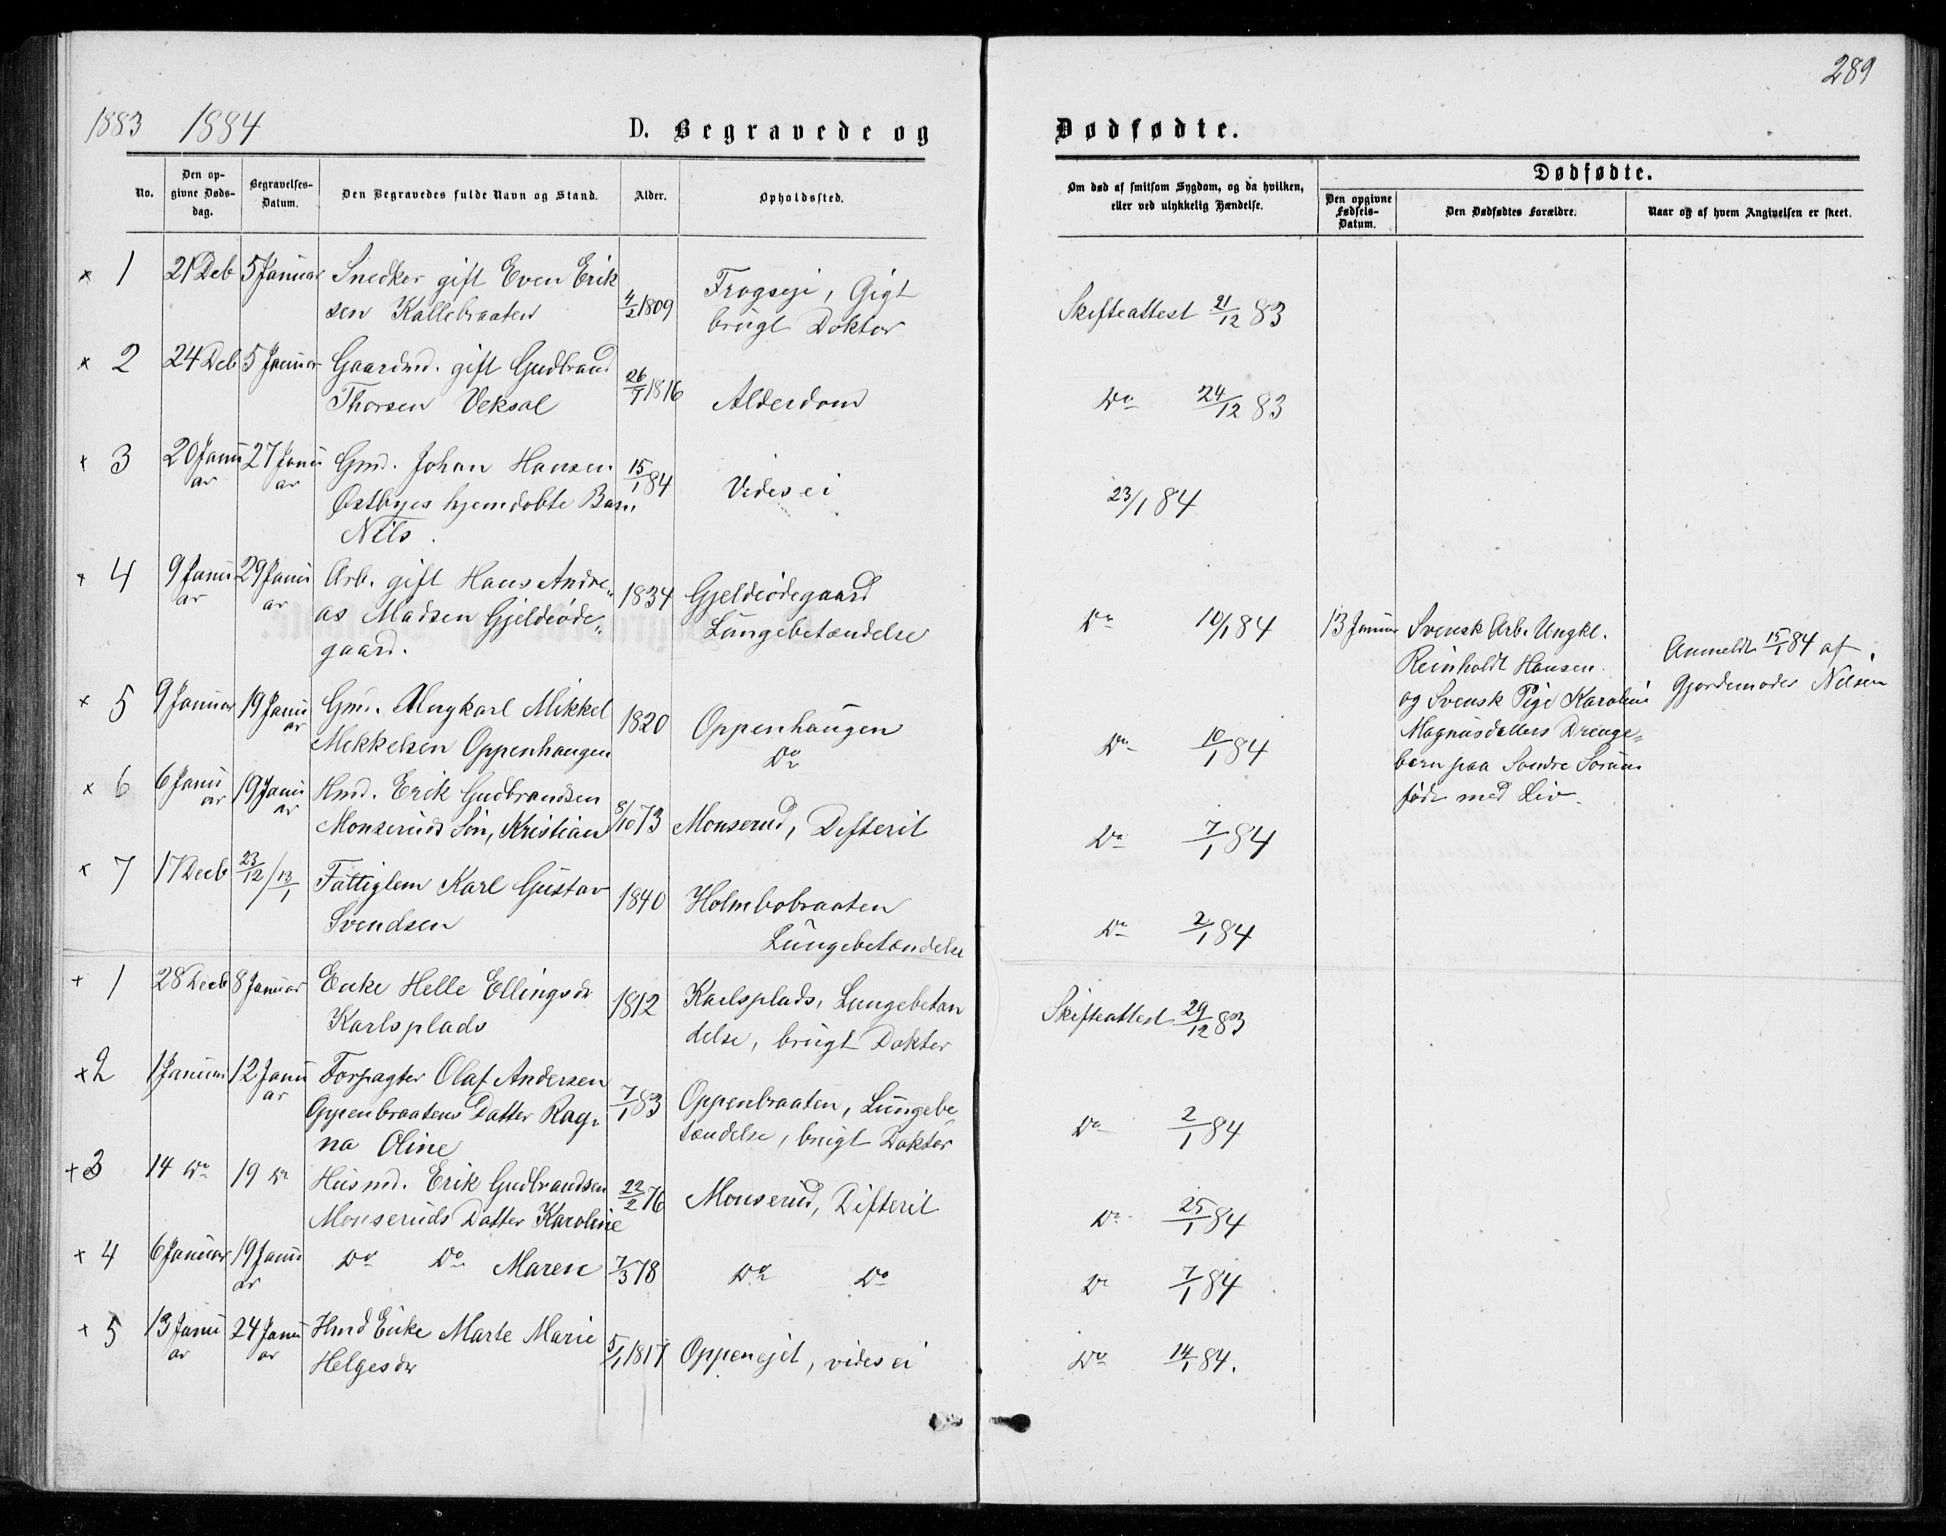 289
1883 1884
D. Begravede og Dødfødte.
No.
Den opgivne Døds-dag.
Begravelses-Datum.
Den Begravedes fulde Navn og Stand.
Alder.
Opholdssted.
Om død af smitsom Sygdom, og da hvilken, eller ved ulykkelig Hændelse.
Dødfødte.
Den opgivne Fødsels-Datum.
Den Dødfødtes Forældre.
Naar og af hvem Angivelsen er skeet.
x 1 21 Deb 5 Januar Snedker gift Even Erik
sen Kallebraaten 4/2 1809 Frogseje, Gigt
brugt Doktor Skifteattest 21/12 83
x 2 24 Deb 5 Januar Gaardmd. gift Gudbrand
Thorsen Veksal 26/7 1816 Alderdom Do 24/12 83
x 3 20 Janu 27 Janu Gmd. Johan Hansen
ar ar Østbyes hjemdøbte Barn 15/1 84 Vides ei 23/1 84
Nils.
x 4 9 Janu 29 Janu Arb. gift Hans Andre-
ar ar as Madsen Gjeldeøde- 1834 Gjeldeødegaard
gaard. Lungebetændelse Do 10/1 84
13 Januar Svensk Arb. Ungkl.
Reinholdt Hansen
og Svensk Pige Karoline
Magnusdatters Drenge-
barn paa Søndre Sørum
født med Liv.
Anmeldt 15/1 84 af
Gjordemoder Nilsen
x 5 9 Januar 19 Janu Gmd. Ungkarl Mikkel
ar Mikkelsen Oppenhaugen 1820 Oppenhaugen
Do Do 10/1 84
x 6 6 Janu 19 Janu Hmd. Erik Gudbrandsen
ar ar Monseruds Søn, Kristian 8/10 73 Monserud, Difterit Do 7/1 84
x 7 17 Decb 23/12 / 13/1 Fattiglem Karl Gustav
Svendsen 1840 Holmbobraaten
Lungebetændelse Do 2/1 84
+ 1 28 Decb 8 Januar Enke Helle Ellingsdr
Karlsplads 1812 Karlsplads, Lungebetæn
delse, brugt Doktor Skifteattest 29/12 83
x 2 1 Januar 12 Janu Forpagter Olaf Andersen
ar Oppenbraatens Datter Rag- 7/1 83 Oppenbraaten, Lungebe
na Oline tændelse, brugt Doktor Do 2/1 84
+ 3 14 Do 19 Do Husmd. Erik Gudbrandsen
Monseruds Datter Karoline 22/2 76 Monserud, Difterit Do 25/1 84
+ 4 6 Januar 19 Janu Do Do Maren 7/3 78 Do Do Do 7/1 84
ar
+ 5 13 Janu 24 Janu Hmd Enke Marte Marie
ar ar Helgesdr 5/1 1817 Oppenejet, vides ei Do 14/1 84.